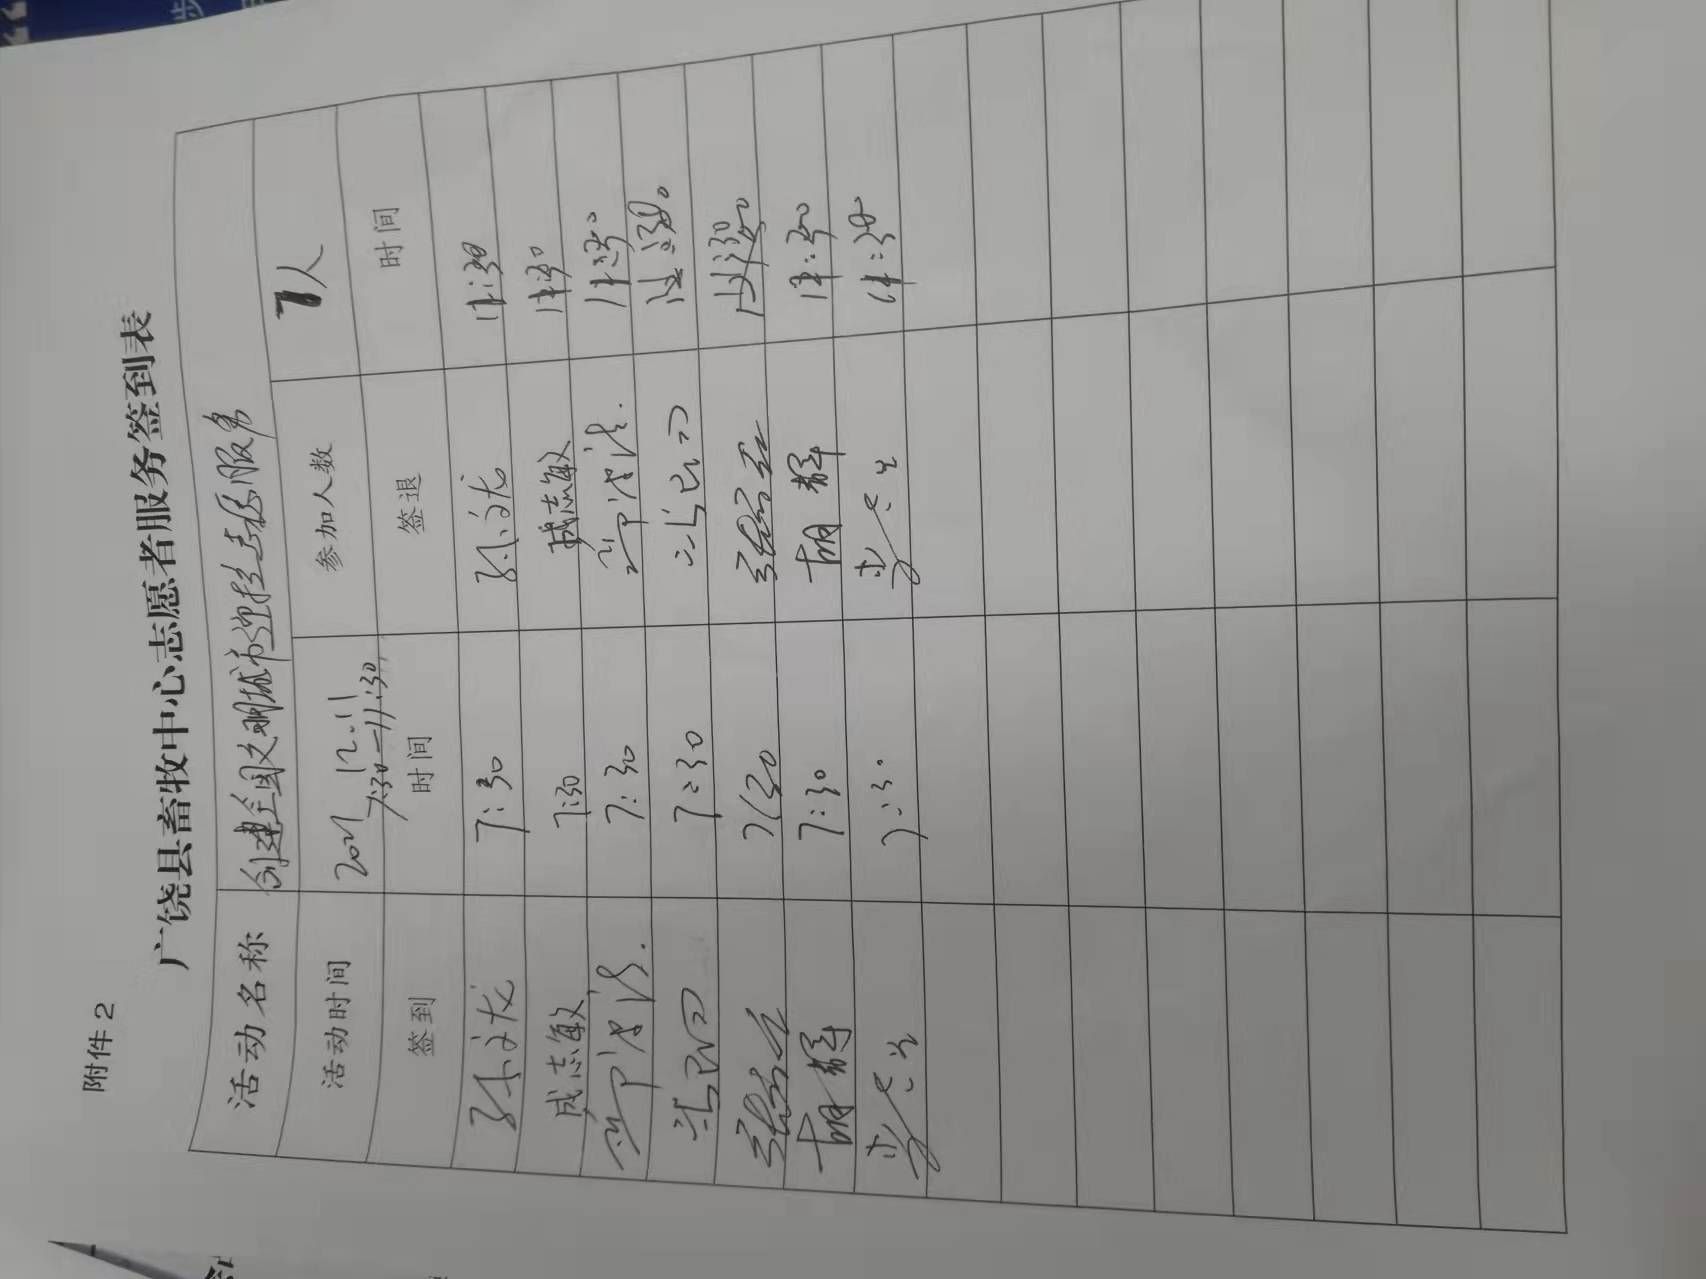 附件2
广饶县畜牧中心志愿者服务签到表
活动名称 创建全国文明城市迎检志愿服务
活动时间 2021 12.11 7:30-11:30 参加人数 7人
签到 时间 签退 时间
孙文龙 7:30 孙文龙 11:30
成志敏 7:30 成志敏 11:30
7:30 11:30
7:30 11:30
7:30 11:30
胡辉 7:30 胡辉 11:30
7:30 11:30